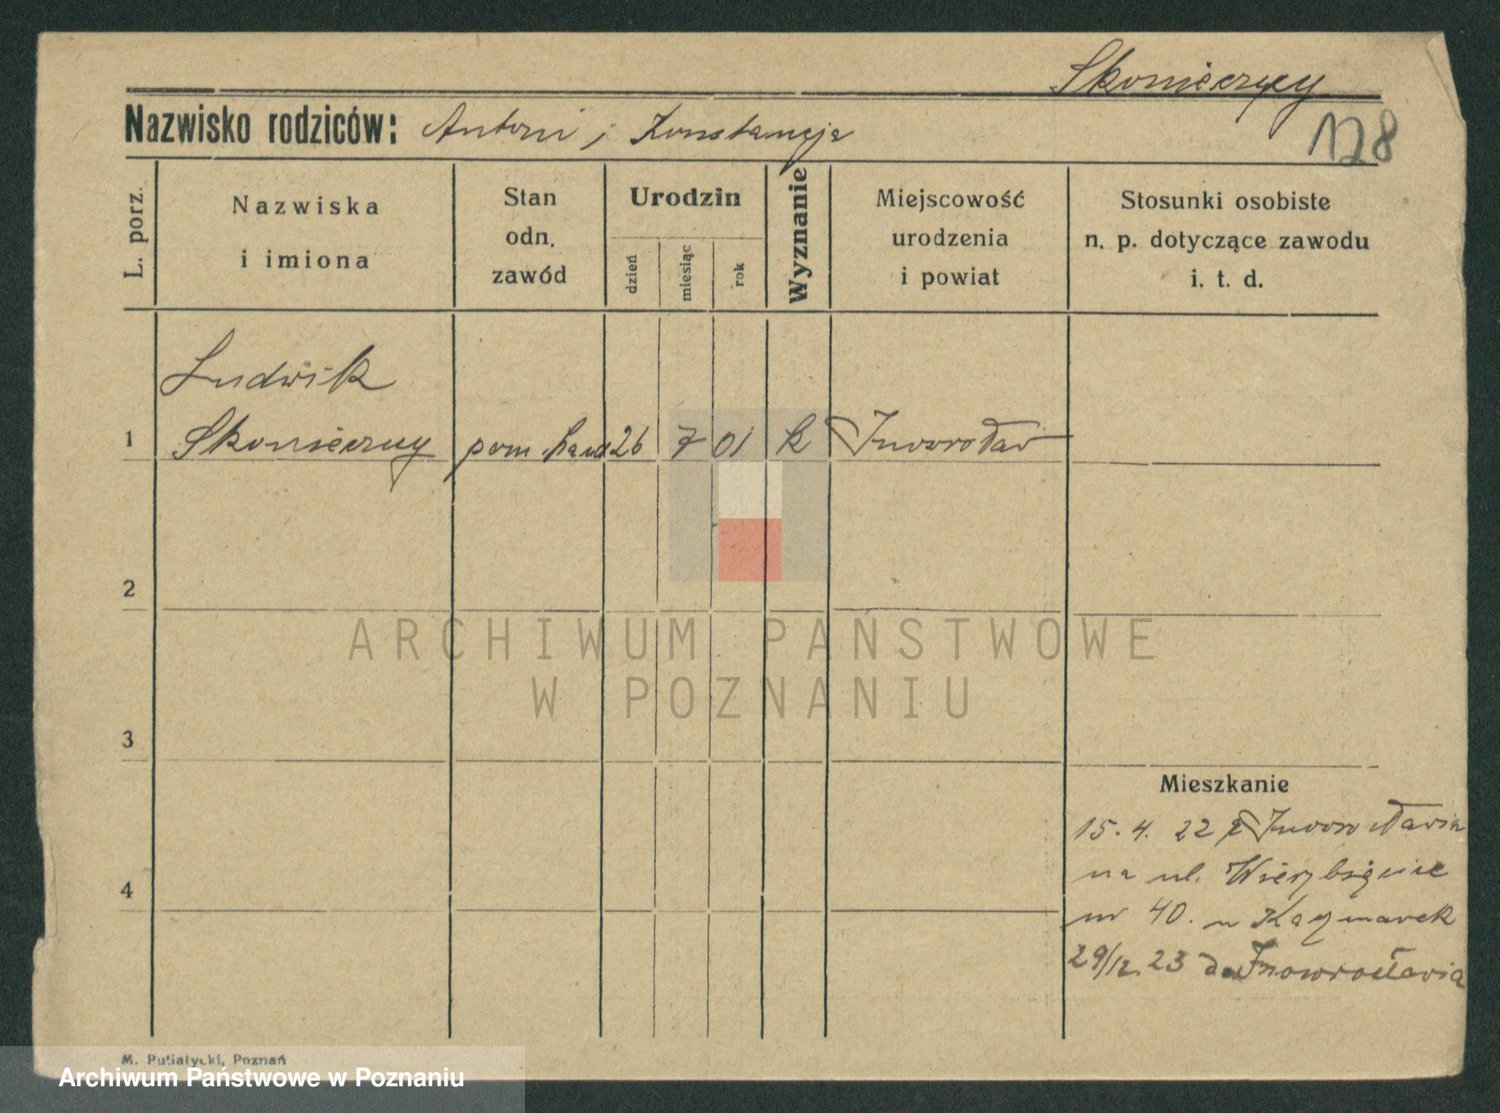 Skonieczny
Nazwisko rodziców: Antoni i Konstancja
128
L. porz.
Nazwiska
i imiona
Stan
odn.
zawód
Urodzin
dzień
miesiąc
rok
Wyznanie
Miejscowość
urodzenia
i powiat
Stosunki osobiste
n. p. dotyczące zawodu
i. t. d.
Ludwik
1 Skonieczny pom hand 26 7 01 k Inowrocław
2
ARCHIWUM PAŃSTWOWE
W POZNANIU
3
Mieszkanie
15. 4. 22 z Inowrocławia
na ul. Wierzbięcie
4
nr 40. u Kaczmarek
29/12. 23 do Inowrocławia
M. Putiatycki, Poznań
Archiwum Państwowe w Poznaniu